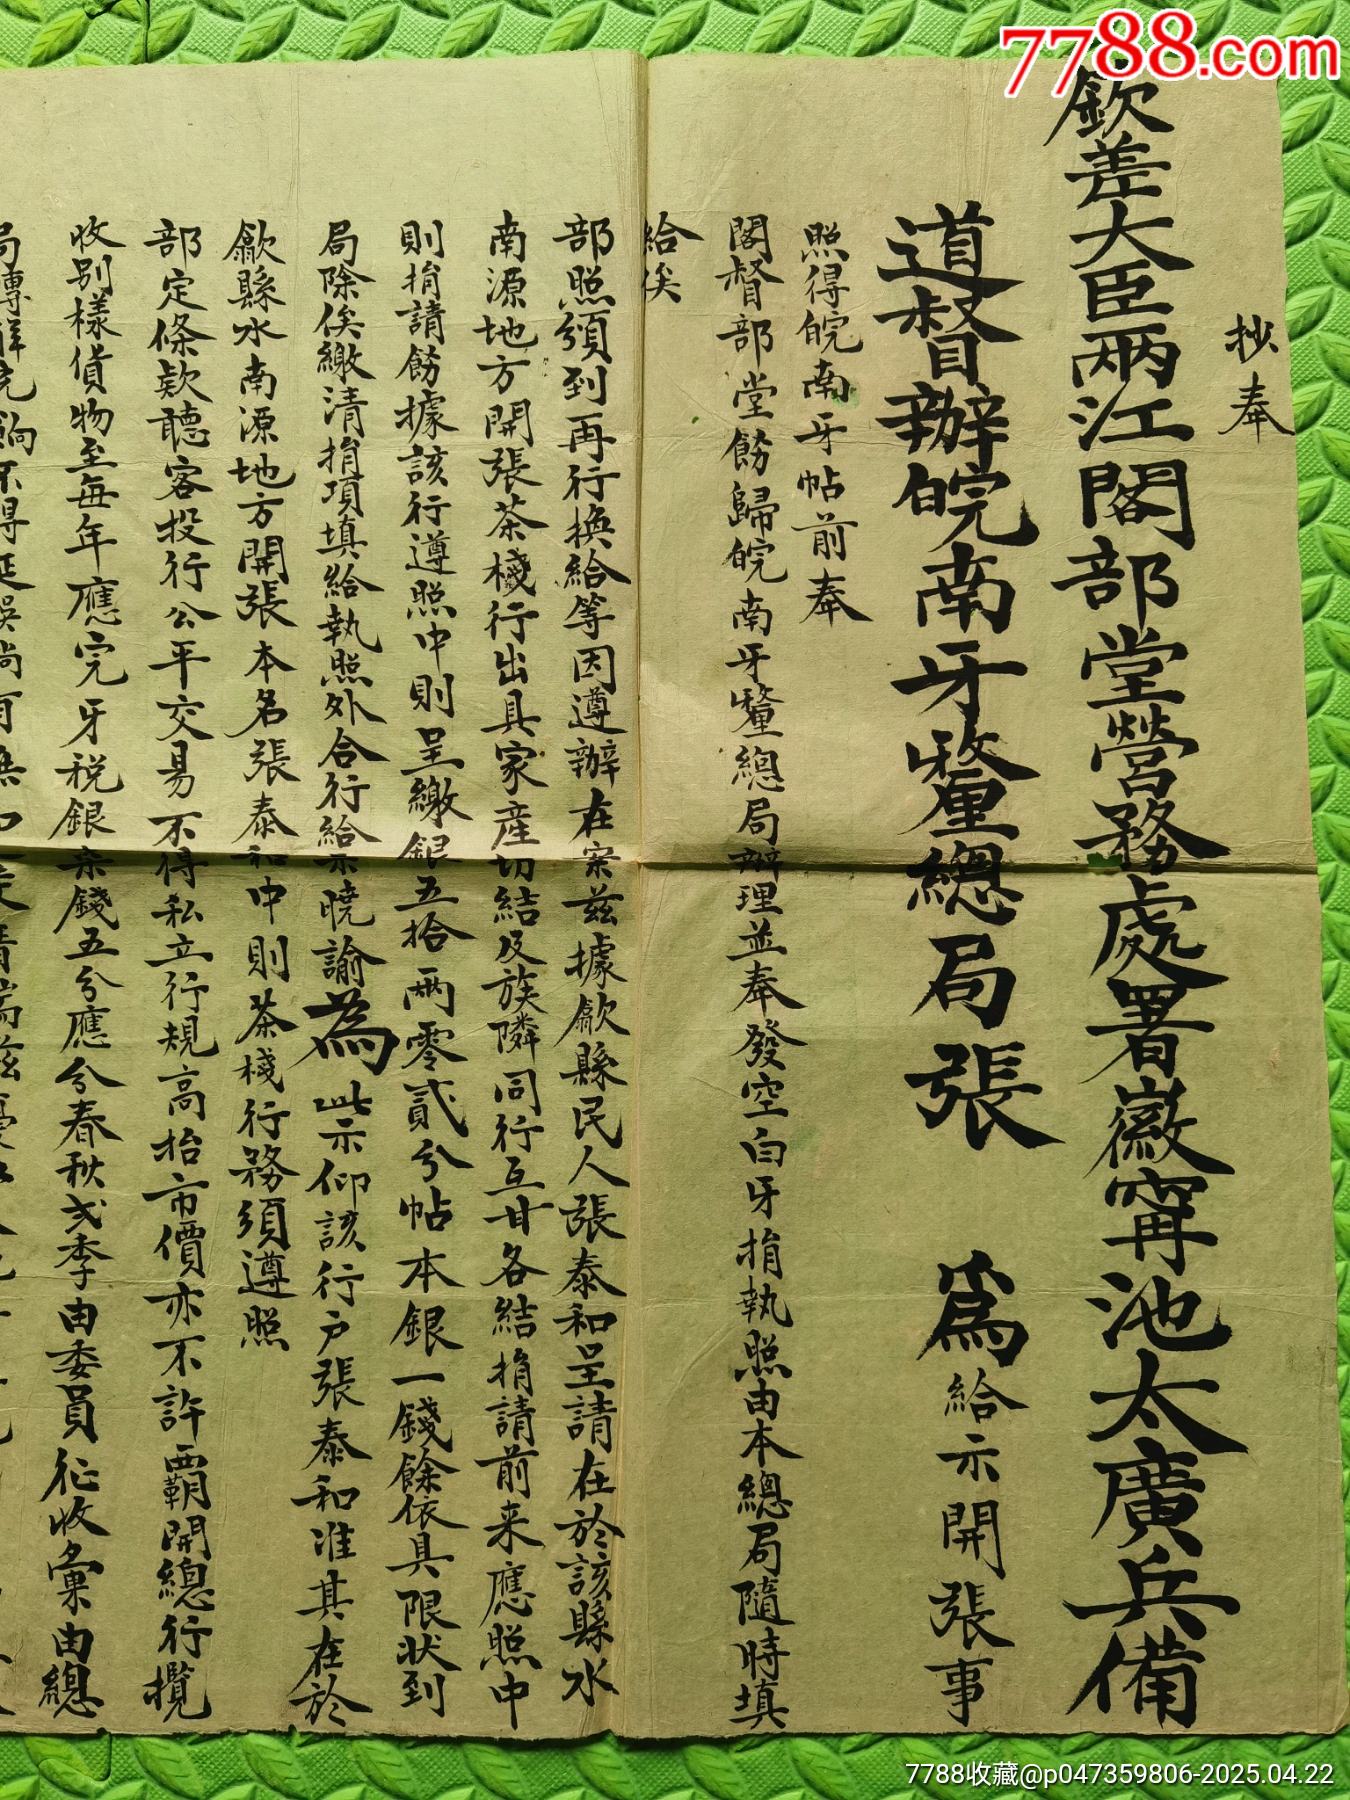 7788.com
抄奉
欽差大臣兩江閣部堂營務處署徽甯池太廣兵備
道督辦皖南牙釐總局張 為給示開張事
照得皖南牙帖前奉
閣督部堂飭歸皖南牙釐總局辦理並奉發空白牙捐執照由本總局隨時填
給俟
部照頒到再行換給等因遵辦在案茲據歙縣民人張泰和呈請在於該縣水
南源地方開張茶棧行出具家產切結及族隣同行互甘各結捐請前来應照中
則捐請飭據該行遵照中則呈繳銀五拾兩零貳分帖本銀一錢餘依具限狀到
局除俟繳清捐項填給執照外合行給示曉諭為此示仰該行户張泰和准其在於
歙縣水南源地方開張本名張泰和中則茶棧行務須遵照
部定條款聽客投行公平交易不得私立行規高抬市價亦不許霸開總行攬
收别樣貨物至每年應完牙税銀柒錢五分應分春秋弍季由委員征收彙由總
7788收藏@p047359806-2025.04.22